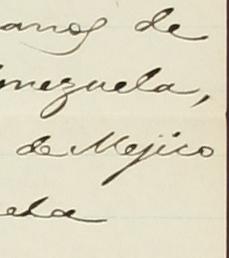 anos de
enezuela,
de Mejico
ela